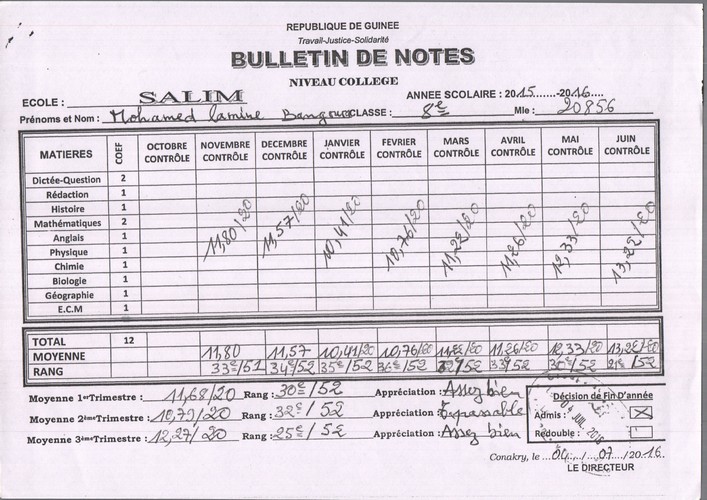 REPUBLIQUE DE GUINEE
Travail-Justice-Solidarité
BULLETIN DE NOTES
NIVEAU COLLEGE
ECOLE : SALIM ANNEE SCOLAIRE : 2015.......-2016.....
Prénoms et Nom : Mohamed lamine CLASSE : 8e Mle : 20856
MATIERES COEF OCTOBRE CONTRÔLE NOVEMBRE CONTRÔLE DECEMBRE CONTRÔLE JANVIER CONTRÔLE FEVRIER CONTRÔLE MARS CONTRÔLE AVRIL CONTRÔLE MAI CONTRÔLE JUIN CONTRÔLE
Dictée-Question 2
Rédaction 1
Histoire 1
Mathématiques 2
Anglais 1
Physique 1
Chimie 1
Biologie 1
Géographie 1
E.C.M 1
11,80/20 11,57/20 10,41/20 10,76/20 11,22/20 11,26/20 12,33/20 13,22/20
TOTAL 12
MOYENNE 11,80 11,57 10,41/20 10,76/20 11,22/20 11,26/20 12,33/20 13,22/20
RANG 33e/51 34e/52 35e/52 36e/52 /52 33e/52 30e/52 21e/52
Moyenne 1erTrimestre : 11,68/20 Rang : 30e/52 Appréciation : Assez bien
Moyenne 2èmeTrimestre : 10,79/20 Rang : 32e/52 Appréciation : passable
Moyenne 3èmeTrimestre : 12,27/20 Rang : 25e/52 Appréciation : Assez bien
Décision de Fin D'année
Admis :
Redouble :
04 JUIL 2016
Conakry, le ...04.../...07.../2016
LE DIRECTEUR